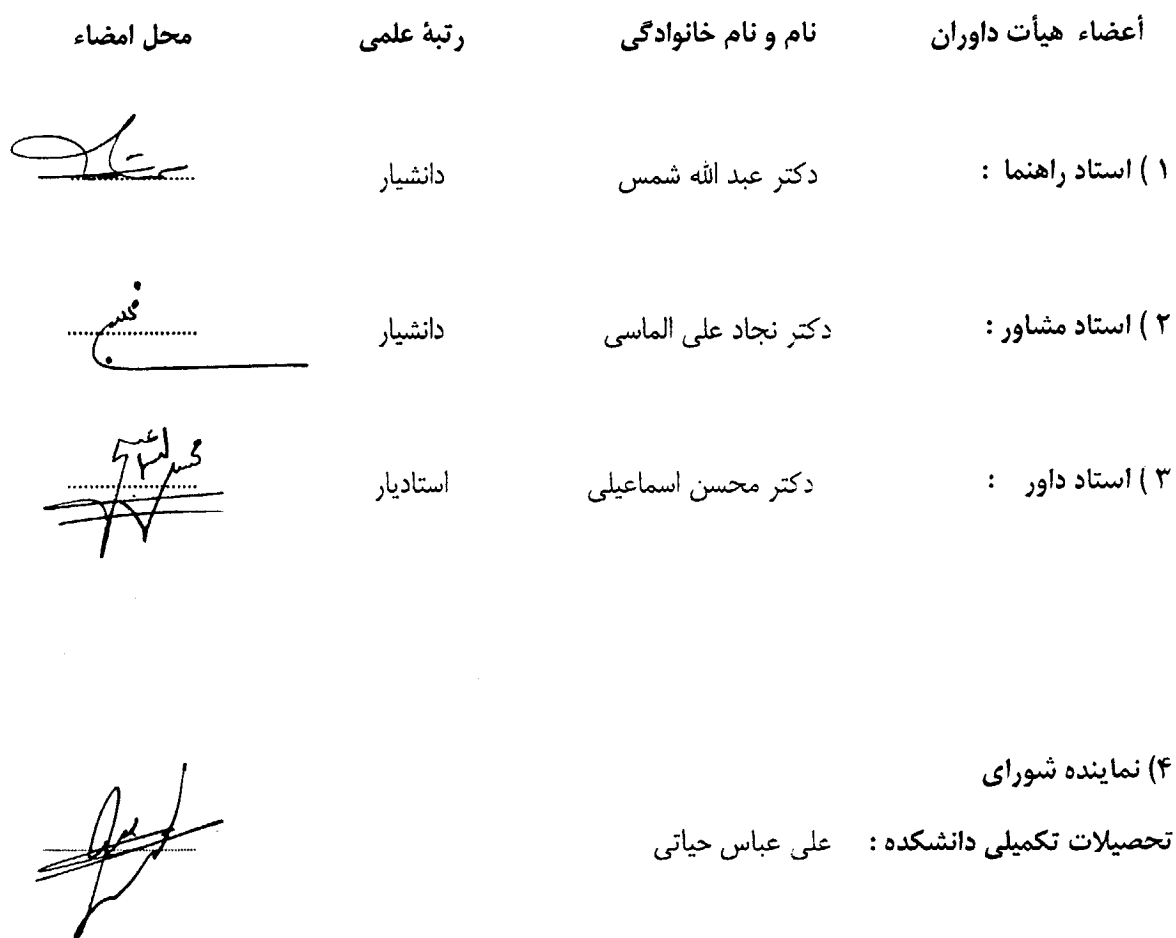 أعضاء هیأت داوران نام و نام خانوادگی رتبهٔ علمی محل امضاء
۱ ) استاد راهنما : دکتر عبد الله شمس دانشیار
۲ ) استاد مشاور : دکتر نجاد علی الماسی دانشیار
۳ ) استاد داور : دکتر محسن اسماعیلی استادیار
۴) نماینده شورای
تحصیلات تکمیلی دانشکده : علی عباس حیاتی